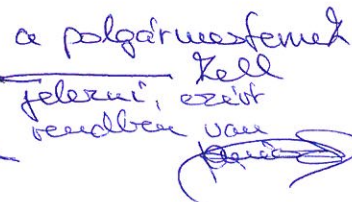 a polgármesternek
kell
jelezni, ezért
rendben van